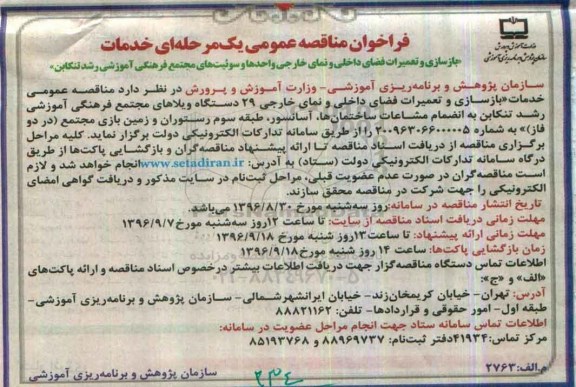 وزارت آموزش و پرورش
سازمان پژوهش و برنامه‌ریزی آموزشی
فراخوان مناقصه عمومی یک‌مرحله‌ای خدمات
«بازسازی و تعمیرات فضای داخلی و نمای خارجی واحدها و سوئیت‌های مجتمع فرهنگی آموزشی رشد تنکابن»
سازمان پژوهش و برنامه‌ریزی آموزشی- وزارت آموزش و پرورش در نظر دارد مناقصه عمومی
خدمات «بازسازی و تعمیرات فضای داخلی و نمای خارجی ۲۹ دستگاه ویلاهای مجتمع فرهنگی آموزشی
رشد تنکابن به انضمام مشاعات ساختمان‌ها، آسانسور، طبقه سوم رستوران و زمین بازی مجتمع (در دو
فاز)» به شماره ۳۰۰۹۶۳۰۶۶۰۰۰۰۰۵ را از طریق سامانه تدارکات الکترونیکی دولت برگزار نماید. کلیه مراحل
برگزاری مناقصه از دریافت اسناد مناقصه تا ارائه پیشنهاد مناقصه‌گران و بازگشایی پاکت‌ها از طریق
درگاه سامانه تدارکات الکترونیکی دولت (ستاد) به آدرس: www.setadiran.ir انجام خواهد شد و لازم
است مناقصه‌گران در صورت عدم عضویت قبلی، مراحل ثبت‌نام در سایت مذکور و دریافت گواهی امضای
الکترونیکی را جهت شرکت در مناقصه محقق سازند.
تاریخ انتشار مناقصه در سامانه: روز سه‌شنبه مورخ ۱۳۹۶/۸/۳۰ می‌باشد.
مهلت زمانی دریافت اسناد مناقصه از سایت: تا ساعت ۱۲ روز سه‌شنبه مورخ ۱۳۹۶/۹/۷
مهلت زمانی ارائه پیشنهاد: تا ساعت ۱۳ روز شنبه مورخ ۱۳۹۶/۹/۱۸
زمان بازگشایی پاکت‌ها: ساعت ۱۴ روز شنبه مورخ ۱۳۹۶/۹/۱۸
اطلاعات تماس دستگاه مناقصه‌گزار جهت دریافت اطلاعات بیشتر درخصوص اسناد مناقصه و ارائه پاکت‌های
«الف» و «ج»:
آدرس: تهران- خیابان کریمخان‌زند- خیابان ایرانشهرشمالی- سازمان پژوهش و برنامه‌ریزی آموزشی-
طبقه اول- امور حقوقی و قراردادها- تلفن: ۸۸۸۲۱۱۶۲
اطلاعات تماس سامانه ستاد جهت انجام مراحل عضویت در سامانه:
مرکز تماس: ۴۱۹۳۴ دفتر ثبت‌نام: ۸۸۹۶۹۷۳۷ و ۸۵۱۹۳۷۶۸
م.الف: ۲۷۶۳ سازمان پژوهش و برنامه‌ریزی آموزشی